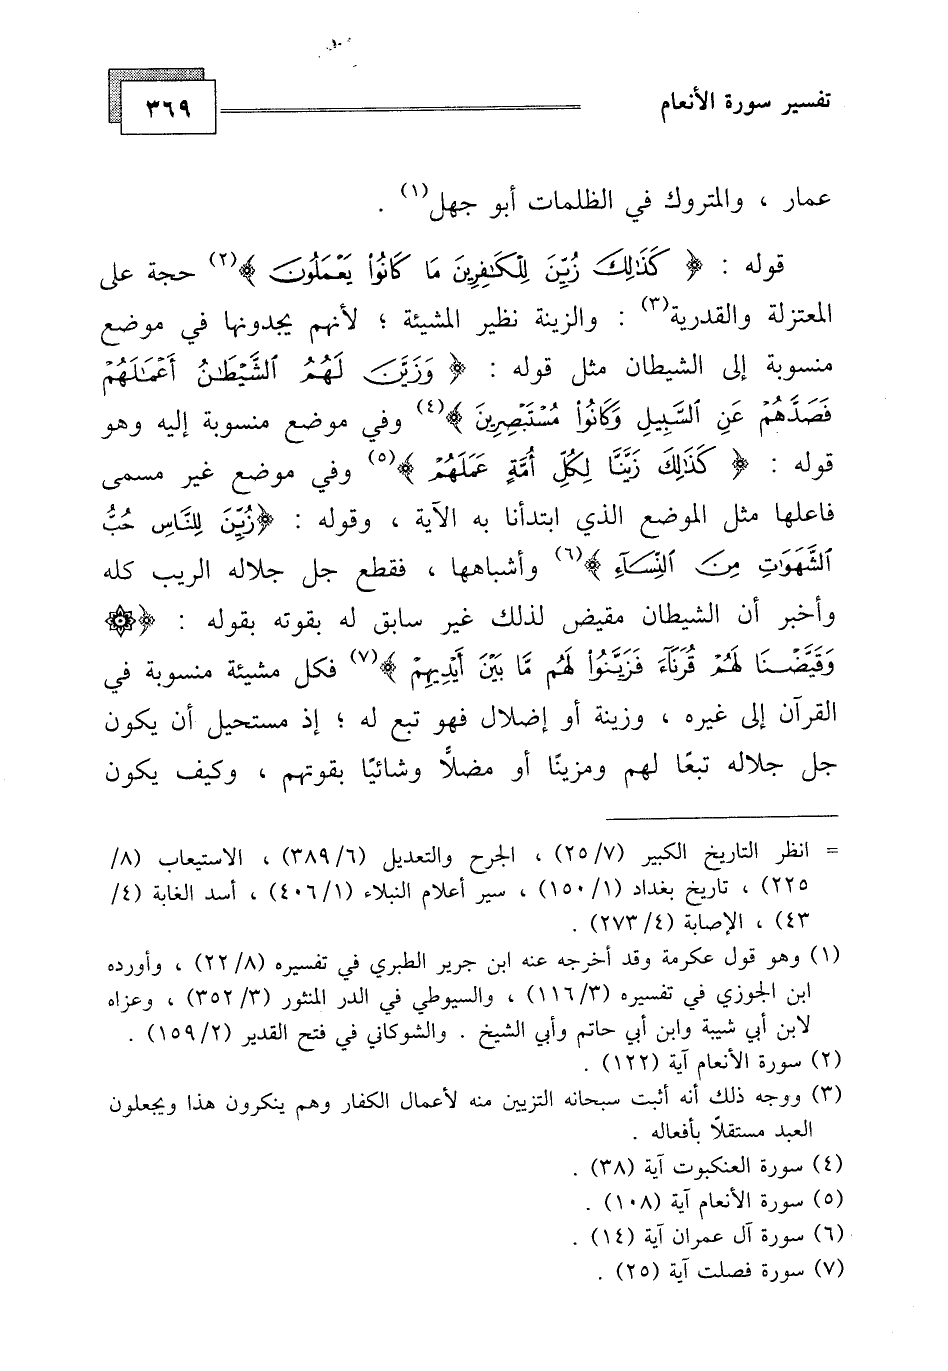 تفسير سورة الأنعام
٣٦٩
عمار ، والمتروك في الظلمات أبو جهل(١) .
قوله : ﴿ كَذَٰلِكَ زُيِّنَ لِلْكَـٰفِرِينَ مَا كَانُوا۟ يَعْمَلُونَ ﴾(٢) حجة على
المعتزلة والقدرية(٣) : والزينة نظير المشيئة ؛ لأنهم يجدونها في موضع
منسوبة إلى الشيطان مثل قوله : ﴿ وَزَيَّنَ لَهُمُ ٱلشَّيْطَـٰنُ أَعْمَـٰلَهُمْ
فَصَدَّهُمْ عَنِ ٱلسَّبِيلِ وَكَانُوا۟ مُسْتَبْصِرِينَ ﴾(٤) وفي موضع منسوبة إليه وهو
قوله : ﴿ كَذَٰلِكَ زَيَّنَّا لِكُلِّ أُمَّةٍ عَمَلَهُمْ ﴾(٥) وفي موضع غير مسمى
فاعلها مثل الموضع الذي ابتدأنا به الآية ، وقوله : ﴿زُيِّنَ لِلنَّاسِ حُبُّ
ٱلشَّهَوَٰتِ مِنَ ٱلنِّسَآءِ ﴾(٦) وأشباهها ، فقطع جل جلاله الريب كله
وأخبر أن الشيطان مقيض لذلك غير سابق له بقوته بقوله : ﴿۞
وَقَيَّضْنَا لَهُمْ قُرَنَآءَ فَزَيَّنُوا۟ لَهُم مَّا بَيْنَ أَيْدِيهِمْ ﴾(٧) فكل مشيئة منسوبة في
القرآن إلى غيره ، وزينة أو إضلال فهو تبع له ؛ إذ مستحيل أن يكون
جل جلاله تبعًا لهم ومزينًا أو مضلًّا وشائيًا بقوتهم ، وكيف يكون
= انظر التاريخ الكبير (٢٥/٧) ، الجرح والتعديل (٣٨٩/٦) ، الاستيعاب (٨/
٢٢٥) ، تاريخ بغداد (١٥٠/١) ، سير أعلام النبلاء (٤٠٦/١) ، أسد الغابة (٤/
٤٣) ، الإصابة (٢٧٣/٤) .
(١) وهو قول عكرمة وقد أخرجه عنه ابن جرير الطبري في تفسيره (٢٢/٨) ، وأورده
ابن الجوزي في تفسيره (١١٦/٣) ، والسيوطي في الدر المنثور (٣٥٢/٣) ، وعزاه
لابن أبي شيبة وابن أبي حاتم وأبي الشيخ . والشوكاني في فتح القدير (١٥٩/٢) .
(٢) سورة الأنعام آية (١٢٢) .
(٣) ووجه ذلك أنه أثبت سبحانه التزيين منه لأعمال الكفار وهم ينكرون هذا ويجعلون
العبد مستقلاً بأفعاله .
(٤) سورة العنكبوت آية (٣٨) .
(٥) سورة الأنعام آية (١٠٨) .
(٦) سورة آل عمران آية (١٤) .
(٧) سورة فصلت آية (٢٥) .